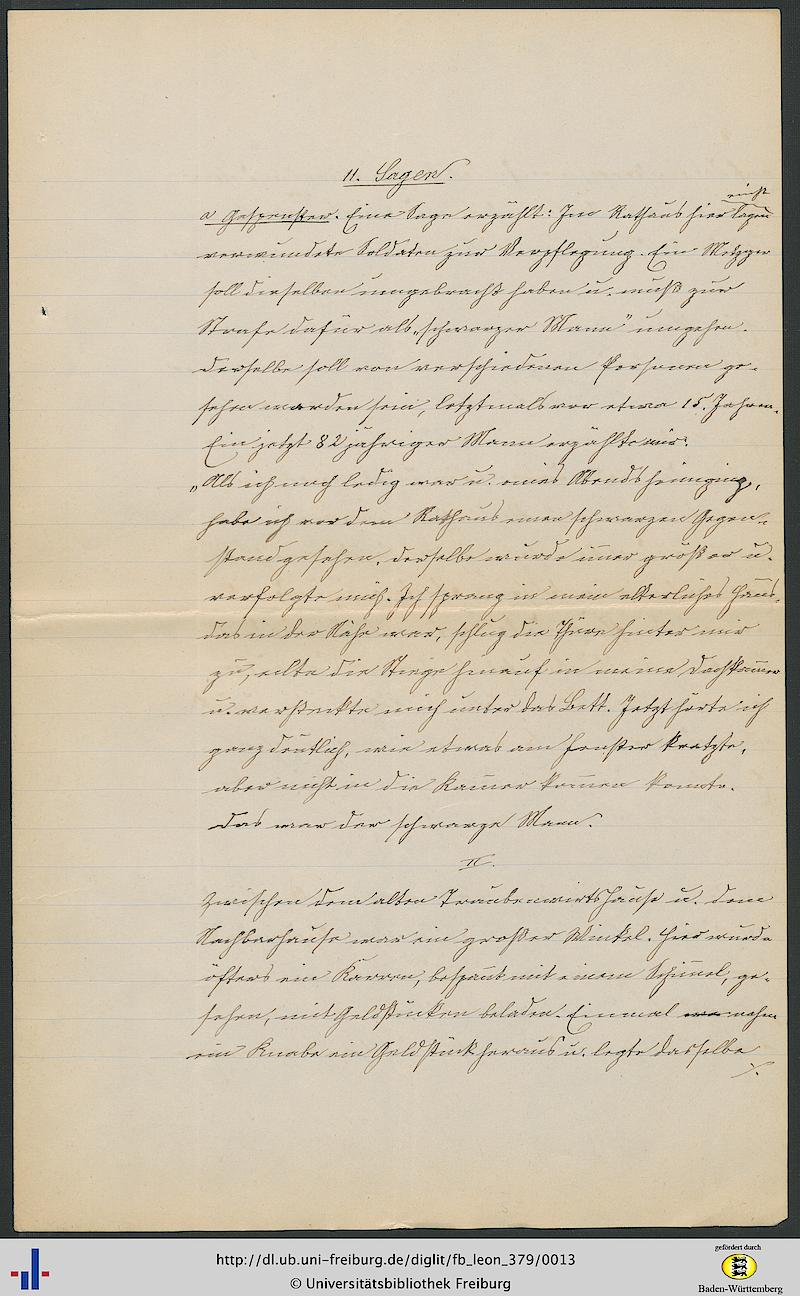 11. Sagen.
einst
a Gespenster. Eine Sage erzählt: Im Rathaus hier lagen
verwundete Soldaten zur Verpflegung. Ein Metzger
soll dieselben umgebracht haben u. muß zur
Strafe dafür als „schwarzer Mann" umgehen.
Derselbe soll von verschiedenen Personen ge-
sehen worden sein, letztmals vor etwa 15. Jahren.
Ein jetzt 82 jähriger Mann erzählte mir:
„Als ich noch ledig war u. eines Abends heimging,
habe ich vor dem Rathaus einen schwarzen Gegen-
stand gesehen, derselbe wurde im̅er größer u.
verfolgte mich. Ich sprang in mein elterliches Haus,
das in der Nähe war, schlug die Thüre hinter mir
zu, eilte die Stiege hinauf in meine Dachkam̅er
u. versteckte mich unter das Bett. Jetzt hörte ich
ganz deutlich, wie etwas am Fenster kratzte,
aber nicht in die Kam̅er kom̅en konnte.
Das war der schwarze Mann.
II.
Zwischen dem alten Traubenwirtshause u. dem
Nachbarhause war ein großer Winkel. Hier wurde
öfters ein Karren, bespan̅t mit einem Schim̅el, ge-
sehen, mit Geldstücken beladen. Einmal nahm
ein Knabe ein Geldstück heraus u. legte dasselbe
http://dl.ub.uni-freiburg.de/diglit/fb_leon_379/0013
© Universitätsbibliothek Freiburg
gefördert durch
Baden-Württemberg